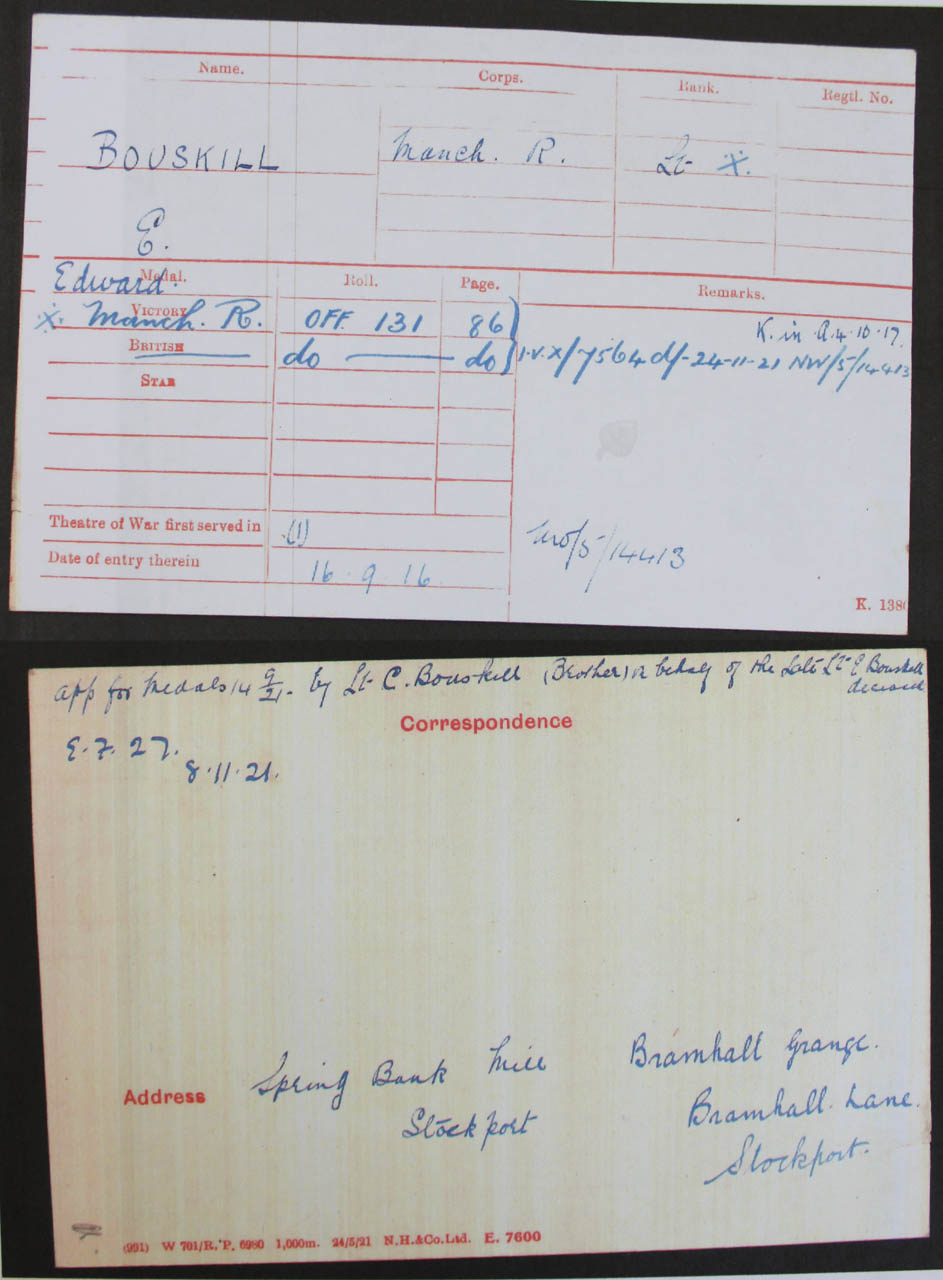 Name. Corps. Rank. Regtl. No.
BOUSKILL Manch. R. Lt X.
E.
Edward.
Medal. Roll. Page. Remarks.
VICTORY
X. Manch. R. OFF. 131 86 K. in A. 4.10.17.
BRITISH do do I.V.X/7564 d/-24-11-21 NW/5/14413
STAR
Theatre of War first served in (1)
/5/14413
Date of entry therein 16.9.16.
K. 1380
app for Medals 14 9/21. by Lt C. Bouskill (Brother) on behalf of the late Lt E Bouskill
deceased
Correspondence
E.F. 27.
8.11.21.
Address Spring Bank Mill Bramhall Grange.
Stockport Bramhall. Lane.
Stockport.
(991) W 701/R.P. 6980 1,000m. 24/5/21 N.H.&Co.Ltd. E. 7600